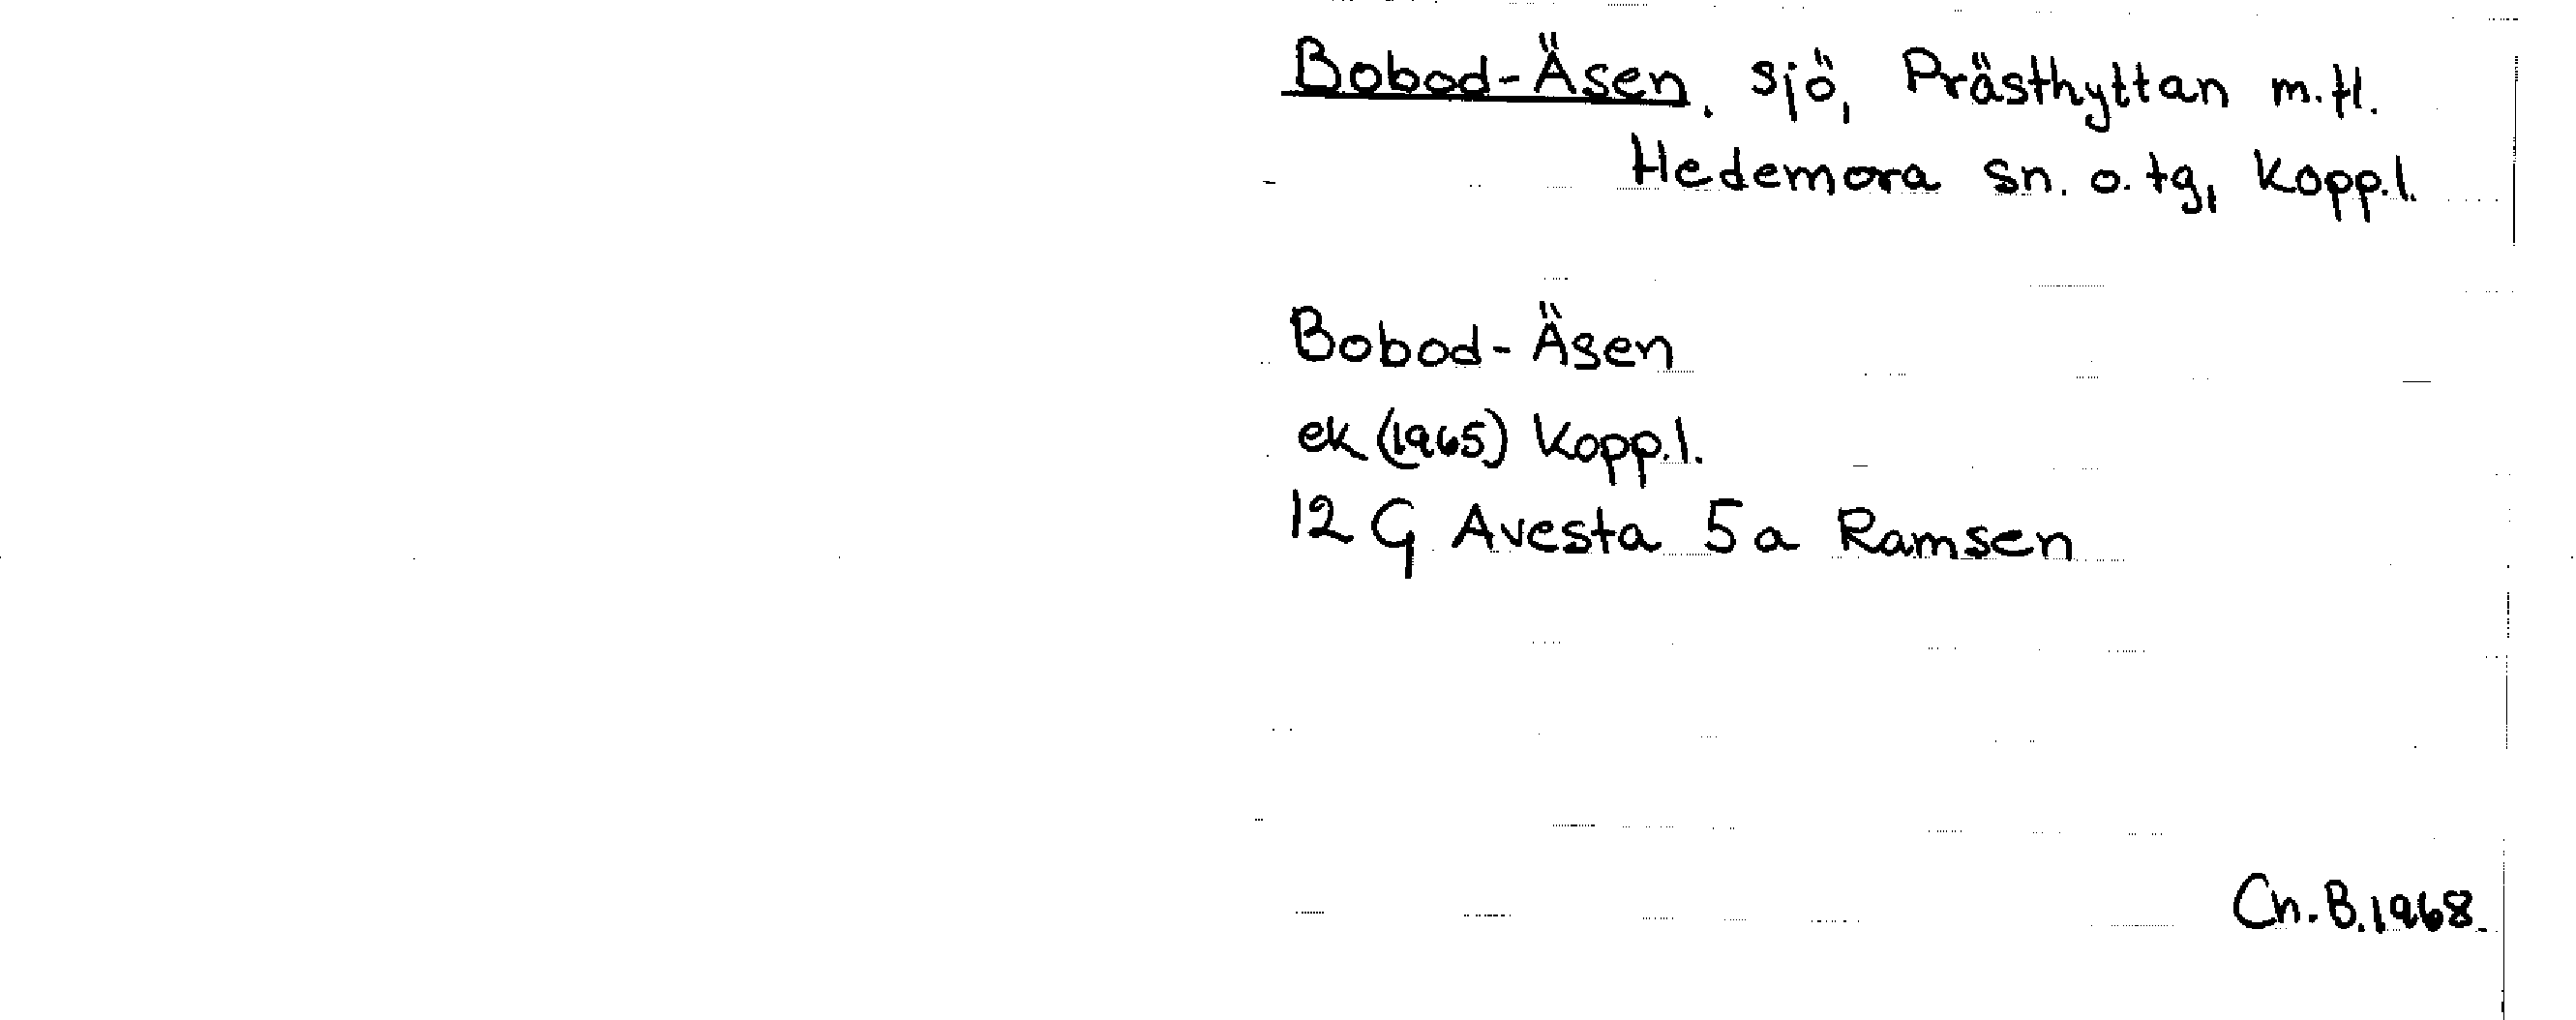 Bobod-Äsen. sjö, Prästhyttan m.fl.
Hedemora sn. o. tg, Kopp.l.
Bobod-Äsen
ek (1965) Kopp.l.
12 G Avesta 5a Ramsen
Ch.B.1968